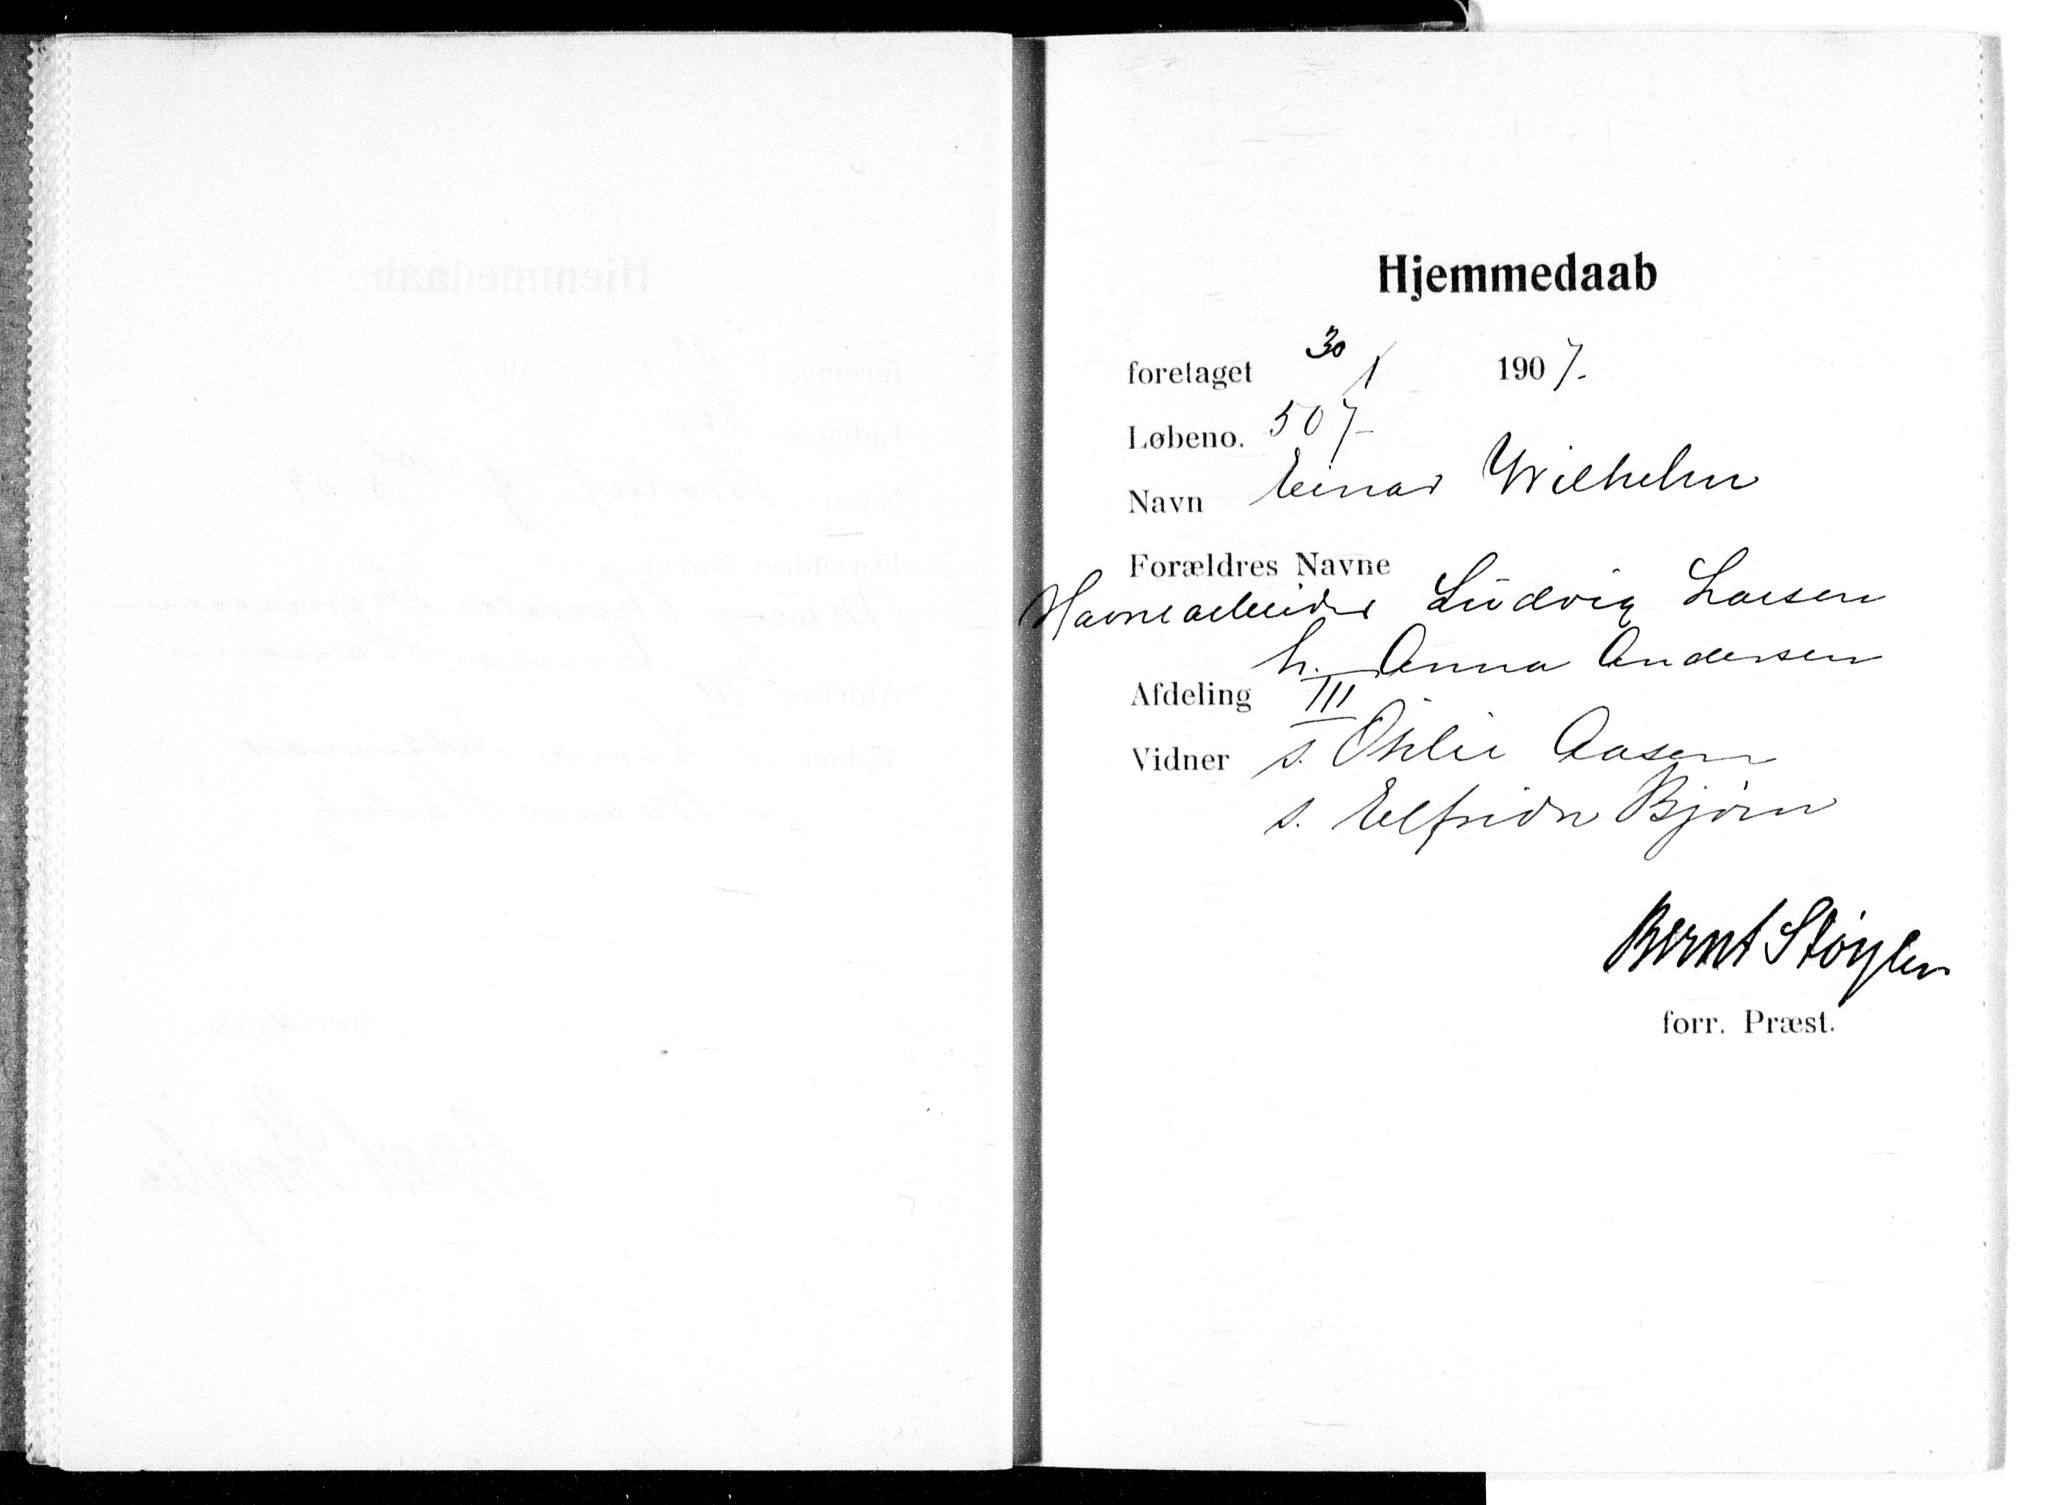 Hjemmedaab
foretaget 30/1 1907.
Løbeno. 507
Navn Einar Wilhelm
Forældres Navne
Havnearbeider Ludvig Larsen
h. Anna Andersen
Afdeling III
Vidner s. Aasen
s. Elfrida Bjørn
Bernt Støylen
forr. Præst.